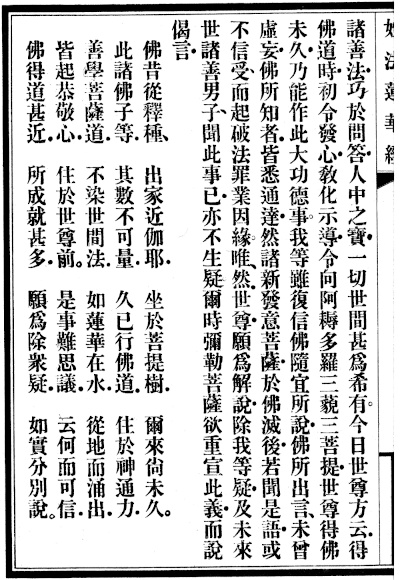 妙法蓮華經
諸善法巧於問答人中之寶一切世間甚爲希有。今日世尊方云得
佛道時初令發心教化示導令向阿耨多羅三藐三菩提世尊得佛
未久乃能作此大功德事。我等雖復信佛隨宜所說佛所出言、未曾
虛妄佛所知者皆悉通達然諸新發意菩薩於佛滅後若聞是語或
不信受而起破法罪業因緣。唯、然、世尊願爲解說除我等疑及未來
世諸善男子、聞此事已亦不生疑爾時彌勒菩薩欲重宣此義而說
偈言
佛昔從釋種、 出家近伽耶 坐於菩提樹 爾來尚未久。
此諸佛子等 其數不可量 久已行佛道 住於神通力
善學菩薩道 不染世間法 如蓮華在水 從地而涌出
皆起恭敬心 住於世尊前。 是事難思議 云何而可信
佛得道甚近 所成就甚多 願爲除衆疑 如實分別說。